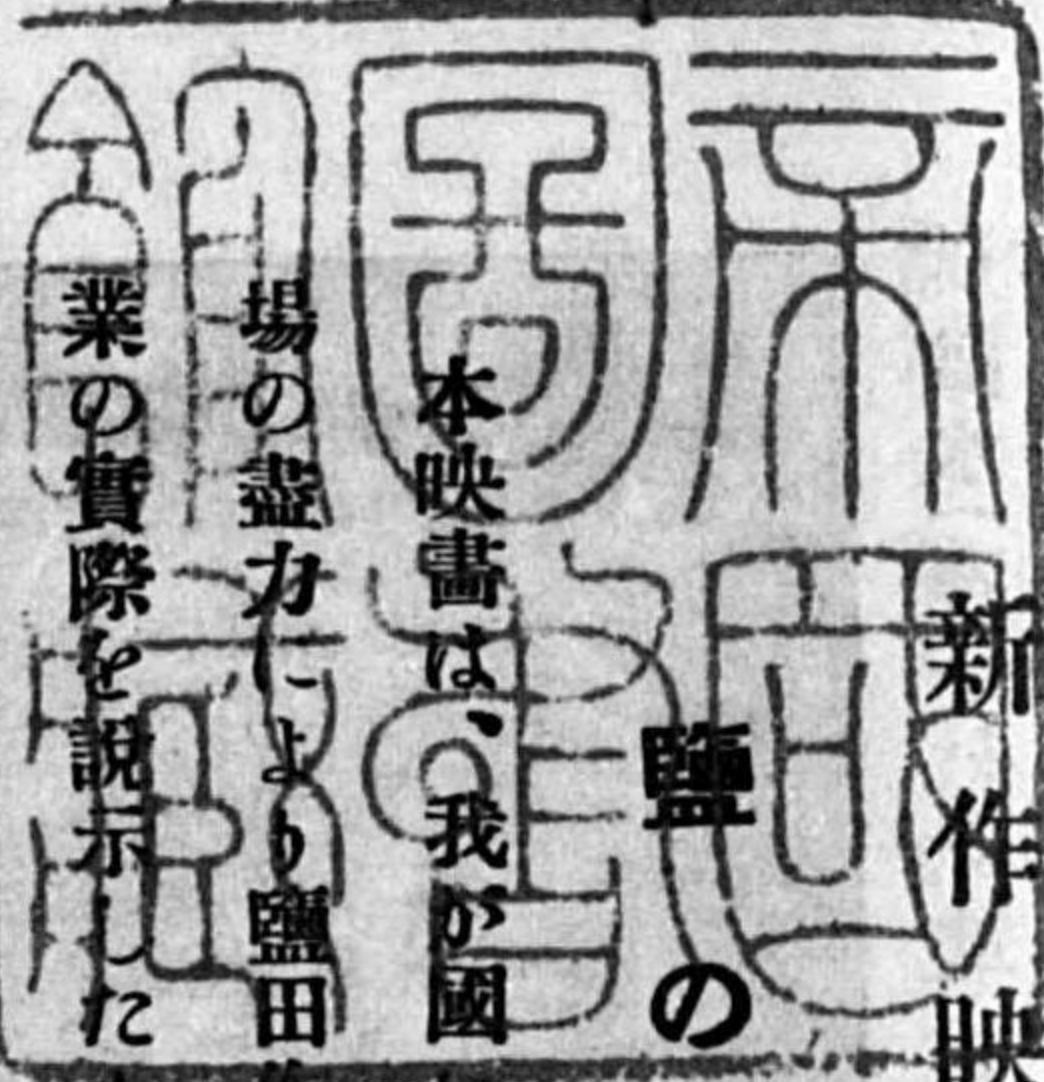 帝國
圖書
館藏
新作映
鹽の
本映畫は、我が國
場の盡力により鹽田
業の實際を說示した